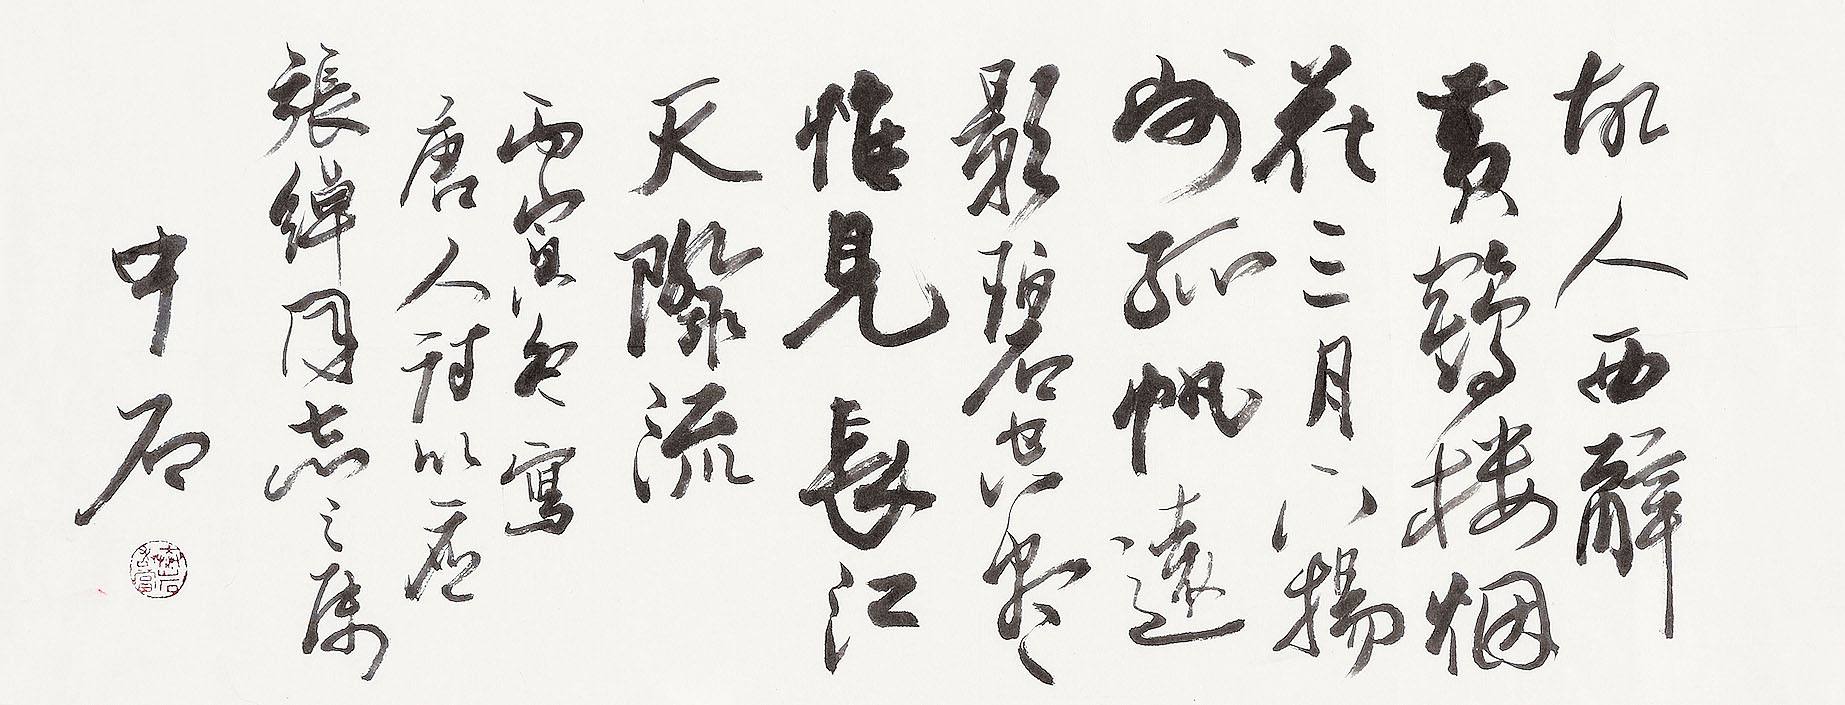 故人西辭
黄鶴楼烟
花三月下揚
州孤帆遠
影碧空盡
惟見長江
天際流
丙寅寫
唐人詩以應
張綽同志之属
中石